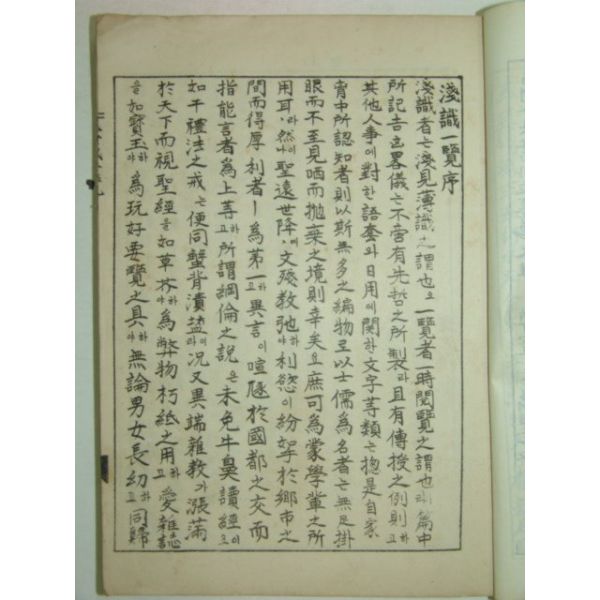 淺識一覽序
淺識者는淺見薄識之謂也오一覽者一時閱覽之謂也라篇中
所記吉凶畧儀는不啻有先哲之所製라且有傳授之例則하고
其他人事에對한語套와日用에關한文字等類는摠是自家
胷中所認知者則以斯無多之編物로以士儒爲名者는無足掛
眼而不至見哂而抛棄之境則幸矣오庶可爲蒙學輩之所
用耳라然이나聖遠世降에文殘教弛하야利慾이紛挐於鄉市之
間而得厚利者ㅣ爲第一하고異言이喧豗於國都之交而
指能言者爲上等하고所謂綱倫之說은未免牛鼻讀經이오
如干禮法之戒는便同蟹背潰盐이라况又異端雜教가漲滿
於天下而視聖經을如草芥하야爲弊物朽紙之用하고愛雜誌
을如寶玉하야爲玩好要覽之具하야無論男女長幼하고同歸